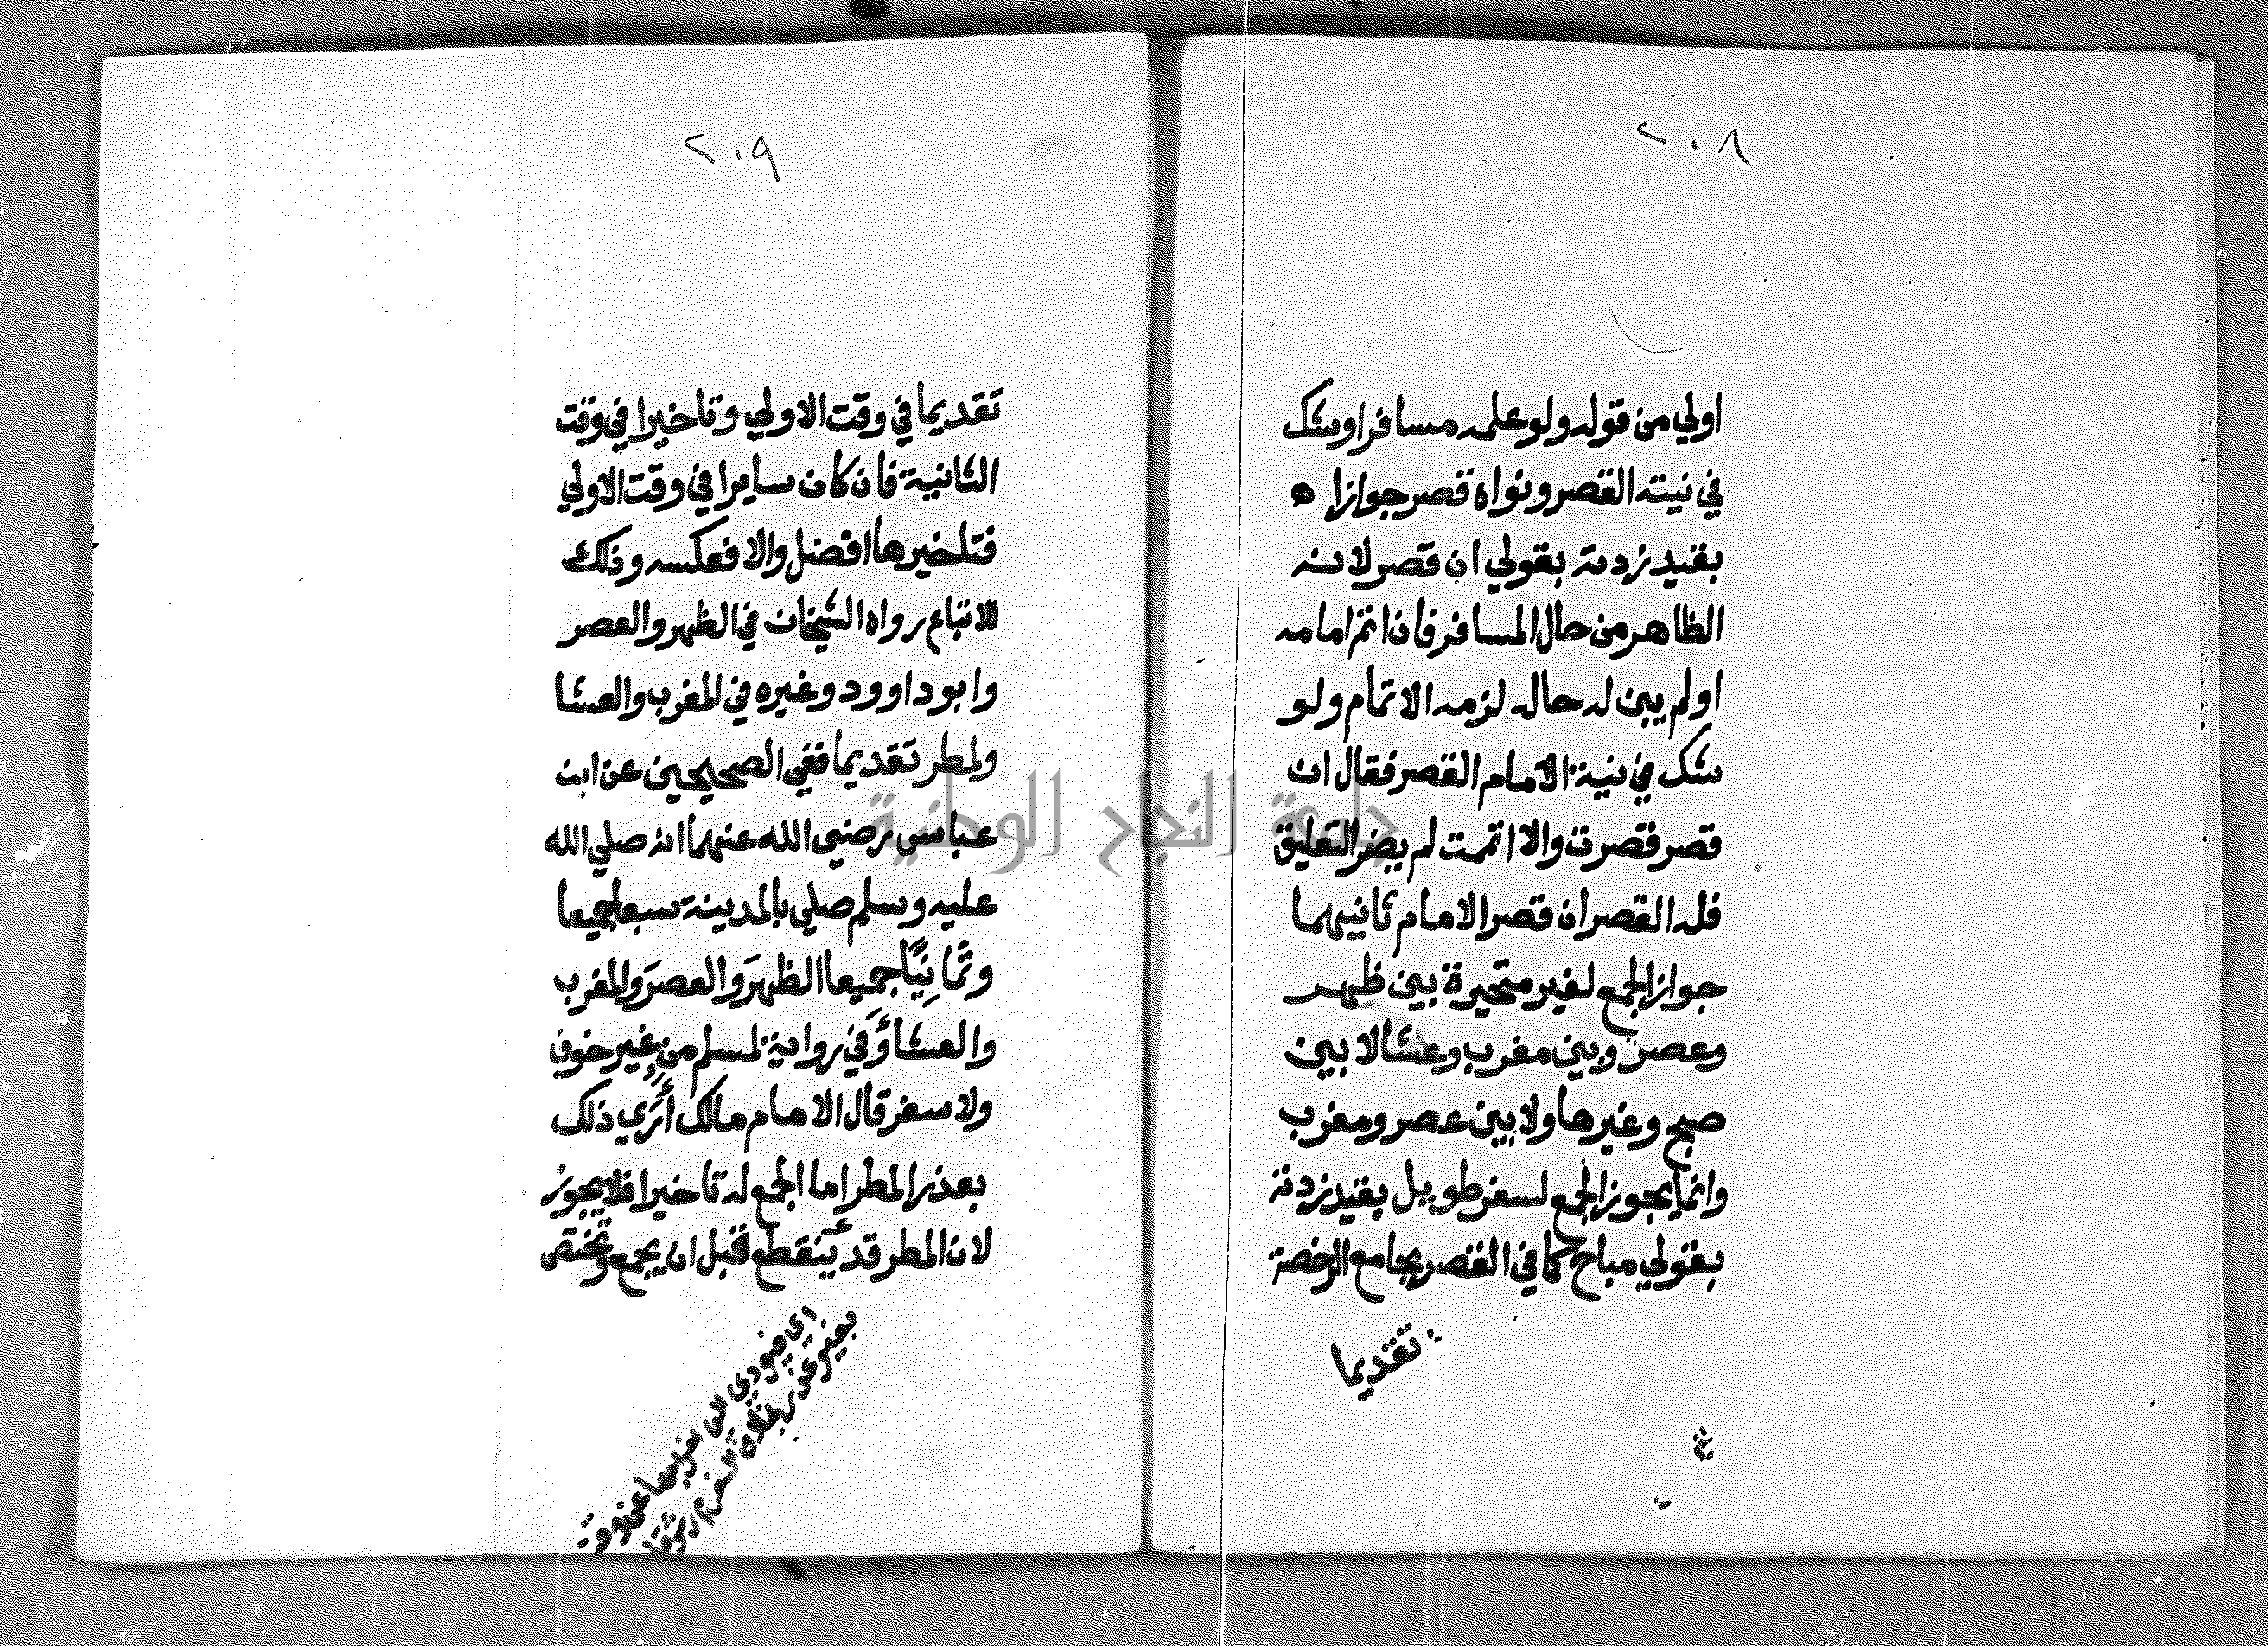 ٢٠٨
اولي من قوله ولو علمه مسافرا وشك
في نيته القصر ونواه قصر جوازا ه
بقيد زدته بقولي ان قصر لانه
الظاهر من حال المسافر فان اتم امامه
اولم يبن له حاله لزمه الاتمام ولو
شك في نية الامام القصر فقال ان
قصر قصرت والا اتممت لم يضر التعليق
فله القصر ان قصر الامام ثانيهما
جواز الجمع لغير متحيرة بين ظهر
وعصر وبين مغرب وعشا لا بين
صبح وغيرها ولا بين عصر ومغرب
وانما يجوز الجمع لسفر طويل بقيد زدته
بقولي مباح كما في القصر بجامع الرخصة
تقديما
٢٠٩
تقديما في وقت الاولي وتاخيرا في وقت
الثانية فان كان سايرا في وقت الاولي
فتاخيرها افضل والا فعكسه وذلك
للاتباع رواه الشيخان في الظهر والعصر
وابو داوود وغيره في المغرب والعشا
ولمطر تقديما ففي الصحيحين عن ابن
عباس رضي الله عنهما انه صلي الله
عليه وسلم صلي بالمدينة سبعا جميعا
وثمانِيًا جميعا الظهرَ والعصرَ والمغرب
والعشا وفي رواية لمسلم من غير خوف
ولا سفر قال الامام مالك أُرَي ذلك
بعذر المطر اما الجمع له تاخيرا فلا يجوز
لان المطر قد ينقطع قبل ان يجمع وتختص
جامعة النجاح الوطنية